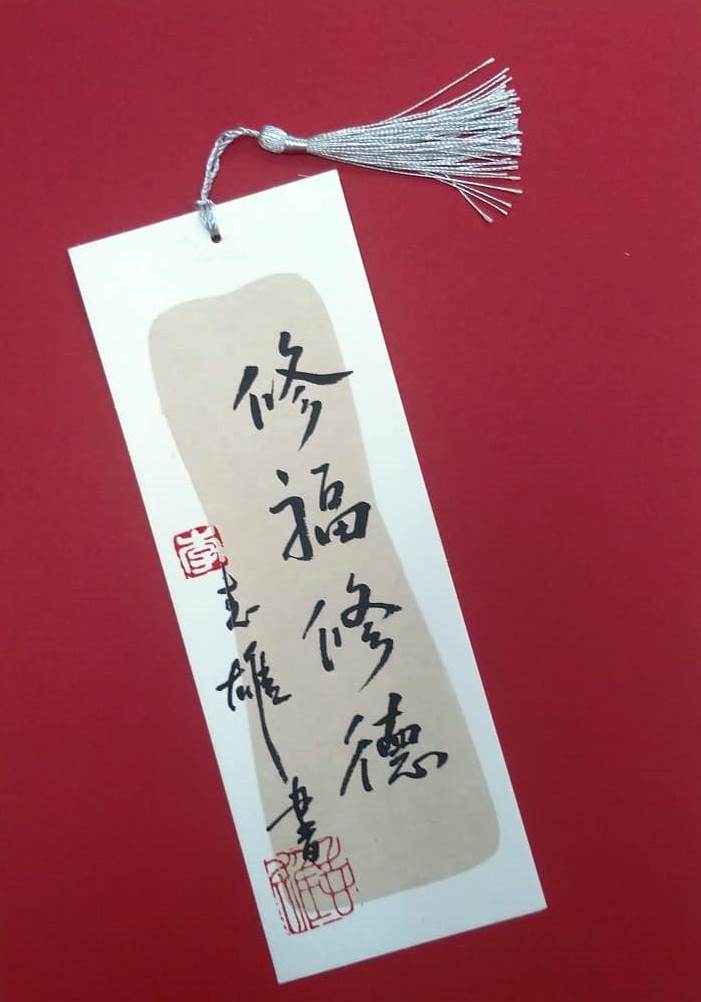 修福修德
李志雄書